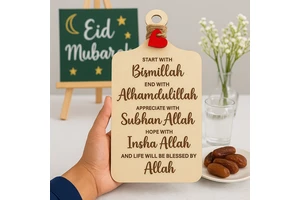 Eid
Mubarak
START WITH
Bismillah
END WITH
Alhamdulillah
APPRECIATE WITH
Subhan Allah
HOPE WITH
Insha Allah
AND LIFE WILL BE BLESSED BY
Allah